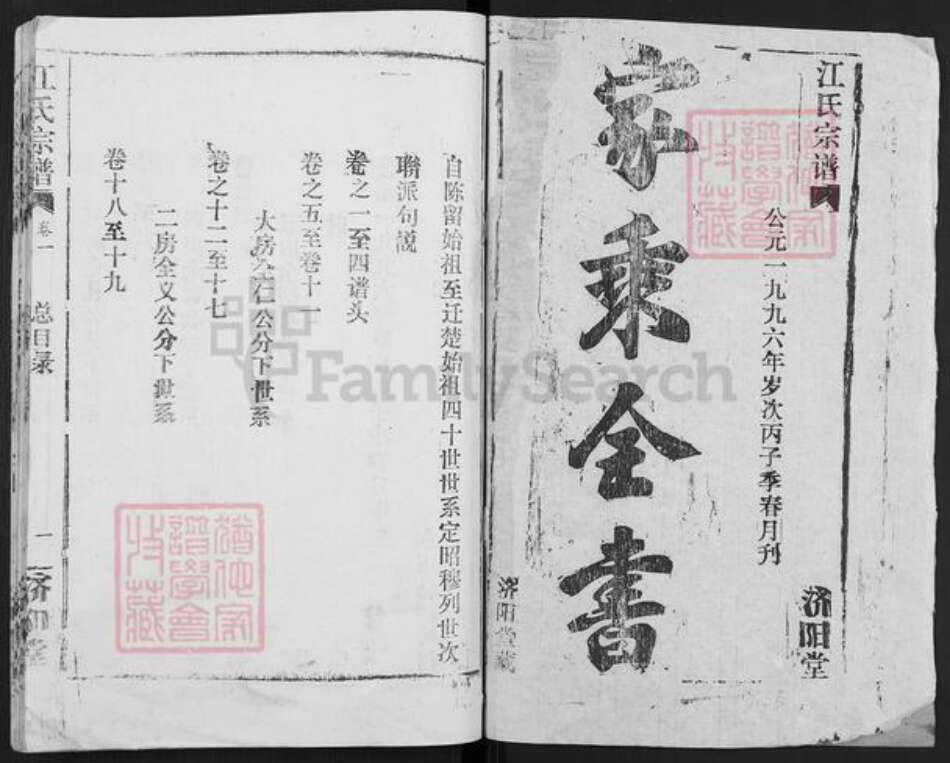 江氏宗谱
济阳堂
公元一九九六年岁次丙子季春月刊
家乘全书
济阳堂藏
自陈留始祖至迁楚始祖四十世世系定昭穆列世次
聯派句説
卷之一至四谱头
卷之五至卷十一
大房全仁公分下世系
卷之十二至十七
二房全义公分下世系
卷十八至十九
江氏宗谱
卷一
总目录
一
济阳堂
FamilySearch